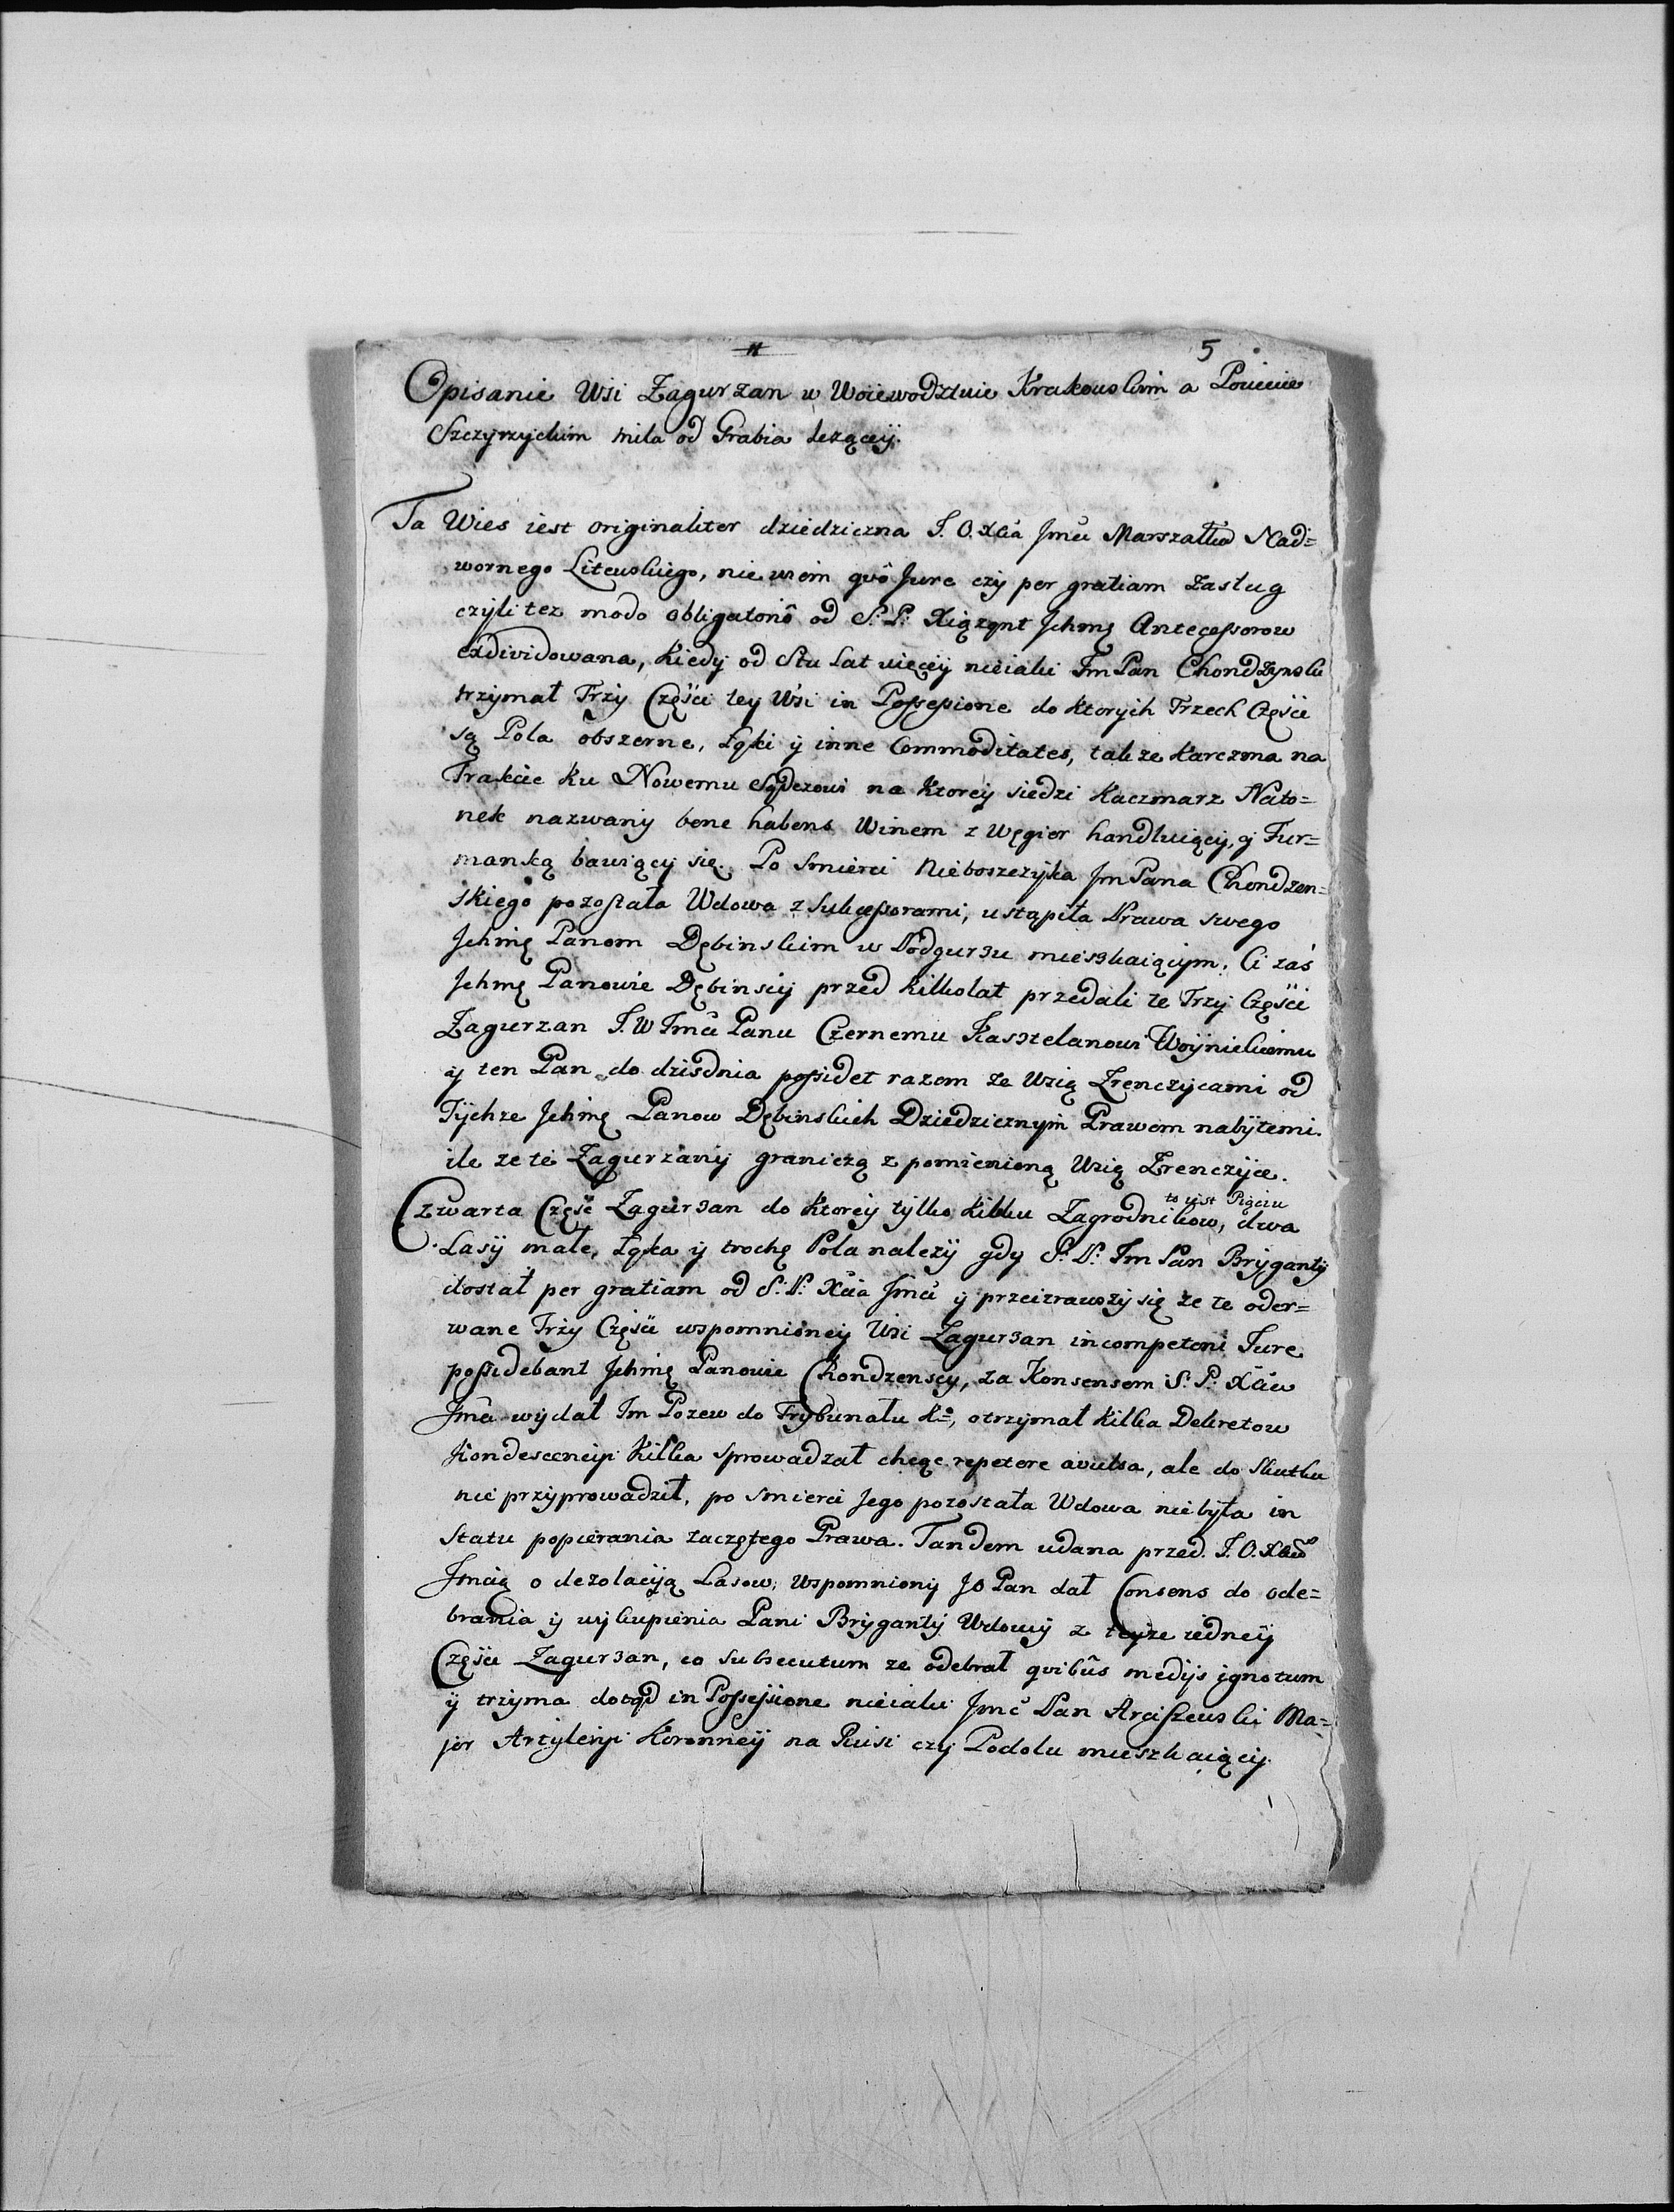 5
Opisanie Wsi Zagurzan w Woiewodztwie Krakowskim a Powiecie
Szczyrzyckim mila od Grabia lezącey.
Ta Wies iest originaliter dziedziczna J. O. Xcia Jmci Marszałka Nad=
wornego Litewskiego, nie wiem quo Jure czy per gratiam zasług
czyli tez modo obligatorio od S. P. Xiążąt Jchmę Antecessorow
exdividowana, kiedy od Stu Lat więcey nieiaki Jm Pan Chondzynski
trzymał Trzy Częsci tey Wsi in Possessione do ktorych Trzech Częsci
są Pola obszerne, Łąki y inne Commoditates, takze karczma na
Trakcie ku Nowemu Sądczowi na ktorey siedzi kaczmarz Nato=
nek nazwany bene habens Winem z Węgier handluiący, y Fur=
manką bawiący się. Po Smierci Nieboszczyka Jm Pana Chondzen=
skiego pozostała Wdowa z Sukcessorami, ustąpiła Prawa swego
Jchmę Panom Dębinskim w Podgurzu mieszkaiącym. Ci zaś
Jchmę Panowie Dębinscy przed kilkolat przedali te Trzy Częsci
Zagurzan J. W Jmci Panu Czernemu Kasztelanowi Woynickiemu
y ten Pan do dzisdnia possidet razem ze Wsią Zrenczycami od
Tychze Jchmę Panow Dębinskich Dziedzicznym Prawem nabytemi.
ile ze te Zagurzany graniczą z pomienioną Wsią Zrenczyce.
to iest Pięciu
Czwarta Częsc Zagurzan do ktorey tylko kilku Zagrodnikow, dwa
Lasy małe, Łąka y trochę Pola nalezy gdy S. P. Jm Pan Bryganty
dostał per gratiam od S. P. Xcia Jmci y przeizrawszy się ze te oder=
wane Trzy Częsci wspomnioney Wsi Zagurzan incompetenti Jure
possidebant Jchmę Panowie Chondzenscy, za Konsensem S. P. Xcia
Jmci wydał Jm Pozew do Trybunału Ko, otrzymał kilka Dekretow
Kondescencyi kilka sprowadzał chcąc repetere avulsa, ale do Skutku
nie przyprowadził, po smierci Jego pozostała Wdowa niebyła in
Statu popierania zaczętego Prawa. Tandem udana przed J. O. Xciem
Jmcią o dezolacyją Lasow, Wspomniony JO Pan dał Consens do ode=
brania y wykupienia Pani Bryganty Wdowy z teyze iedney
Częsci Zagurzan, co subsecutum ze odebrał quibus medijs ignotum
y trzyma dotąd in Possessione nieiaki Jmc Pan Arciszewski Ma=
jor Artyleryi Koronney na Rusi czy Podolu mieszkaiący.